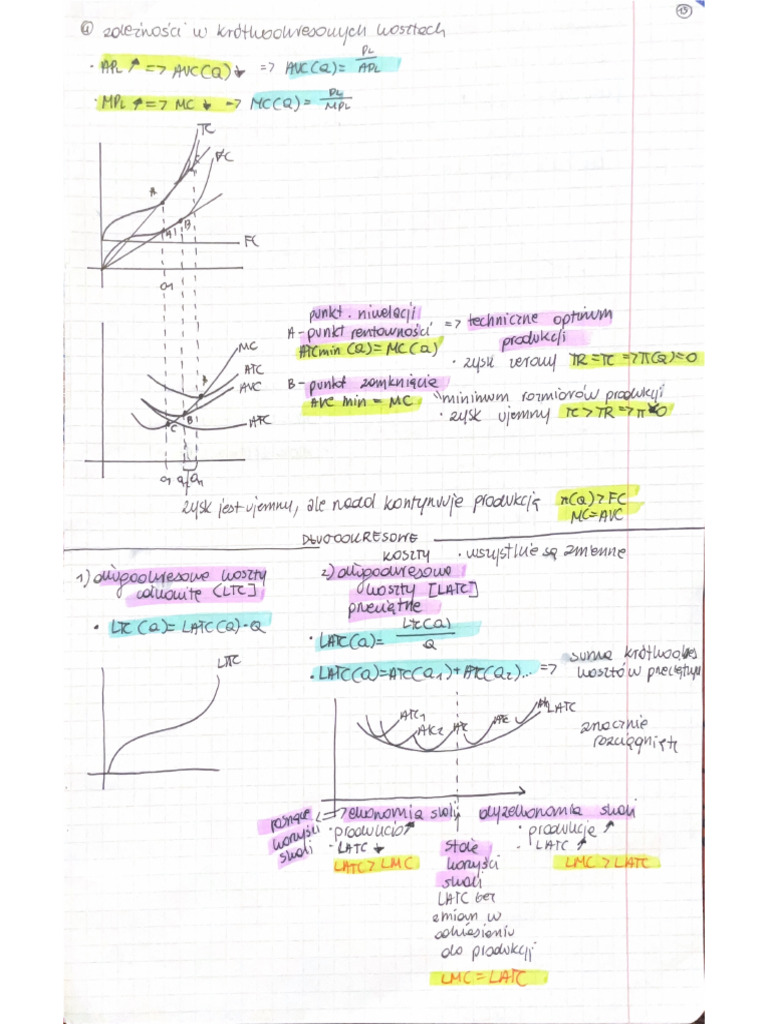 15
④ zależności w krótkookresowych kosztach
· APL ↑ => AVC(Q) ↓ => AVC(Q) = PL/APL
· MPL ↑ => MC ↓ => MC(Q) = PL/MPL
TC
VC
A
A1
B
FC
Q1
punkt niwelacji
A - punkt rentowności => techniczne optimum
produkcji
ATCmin (Q) = MC(Q)
· zysk zerowy TR = TC => π(Q) = 0
B - punkt zamknięcia
AVC min = MC
minimum rozmiarów produkcji
· zysk ujemny TC > TR => π < 0
MC
ATC
AVC
A
B1
C
ATC
Q1
zysk jest ujemny, ale nadal kontynuuje produkcję π(Q) > FC
MC = AVC
DŁUGOOKRESOWE
KOSZTY · wszystkie są zmienne
1) długookresowe koszty
całkowite [LTC]
· LTC(Q) = LATC(Q) · Q
LTC
2) długookresowe
koszty [LATC]
przeciętne
· LATC(Q) = LTC(Q)/Q
· LATC(Q) = ATC(Q1) + ATC(Q2)... => suma krótkookres
kosztów przeciętnych
ATC1
ATC2
LATC
znacznie
rozciągnięte
rosnące <=> ekonomia skali
korzyści
skali
· produkcja ↑
· LATC ↓
LATC > LMC
stałe
korzyści
skali
LATC bez
zmian w
odniesieniu
do produkcji
LMC = LATC
dyzekonomia skali
· produkcja ↑
· LATC ↑
LMC > LATC